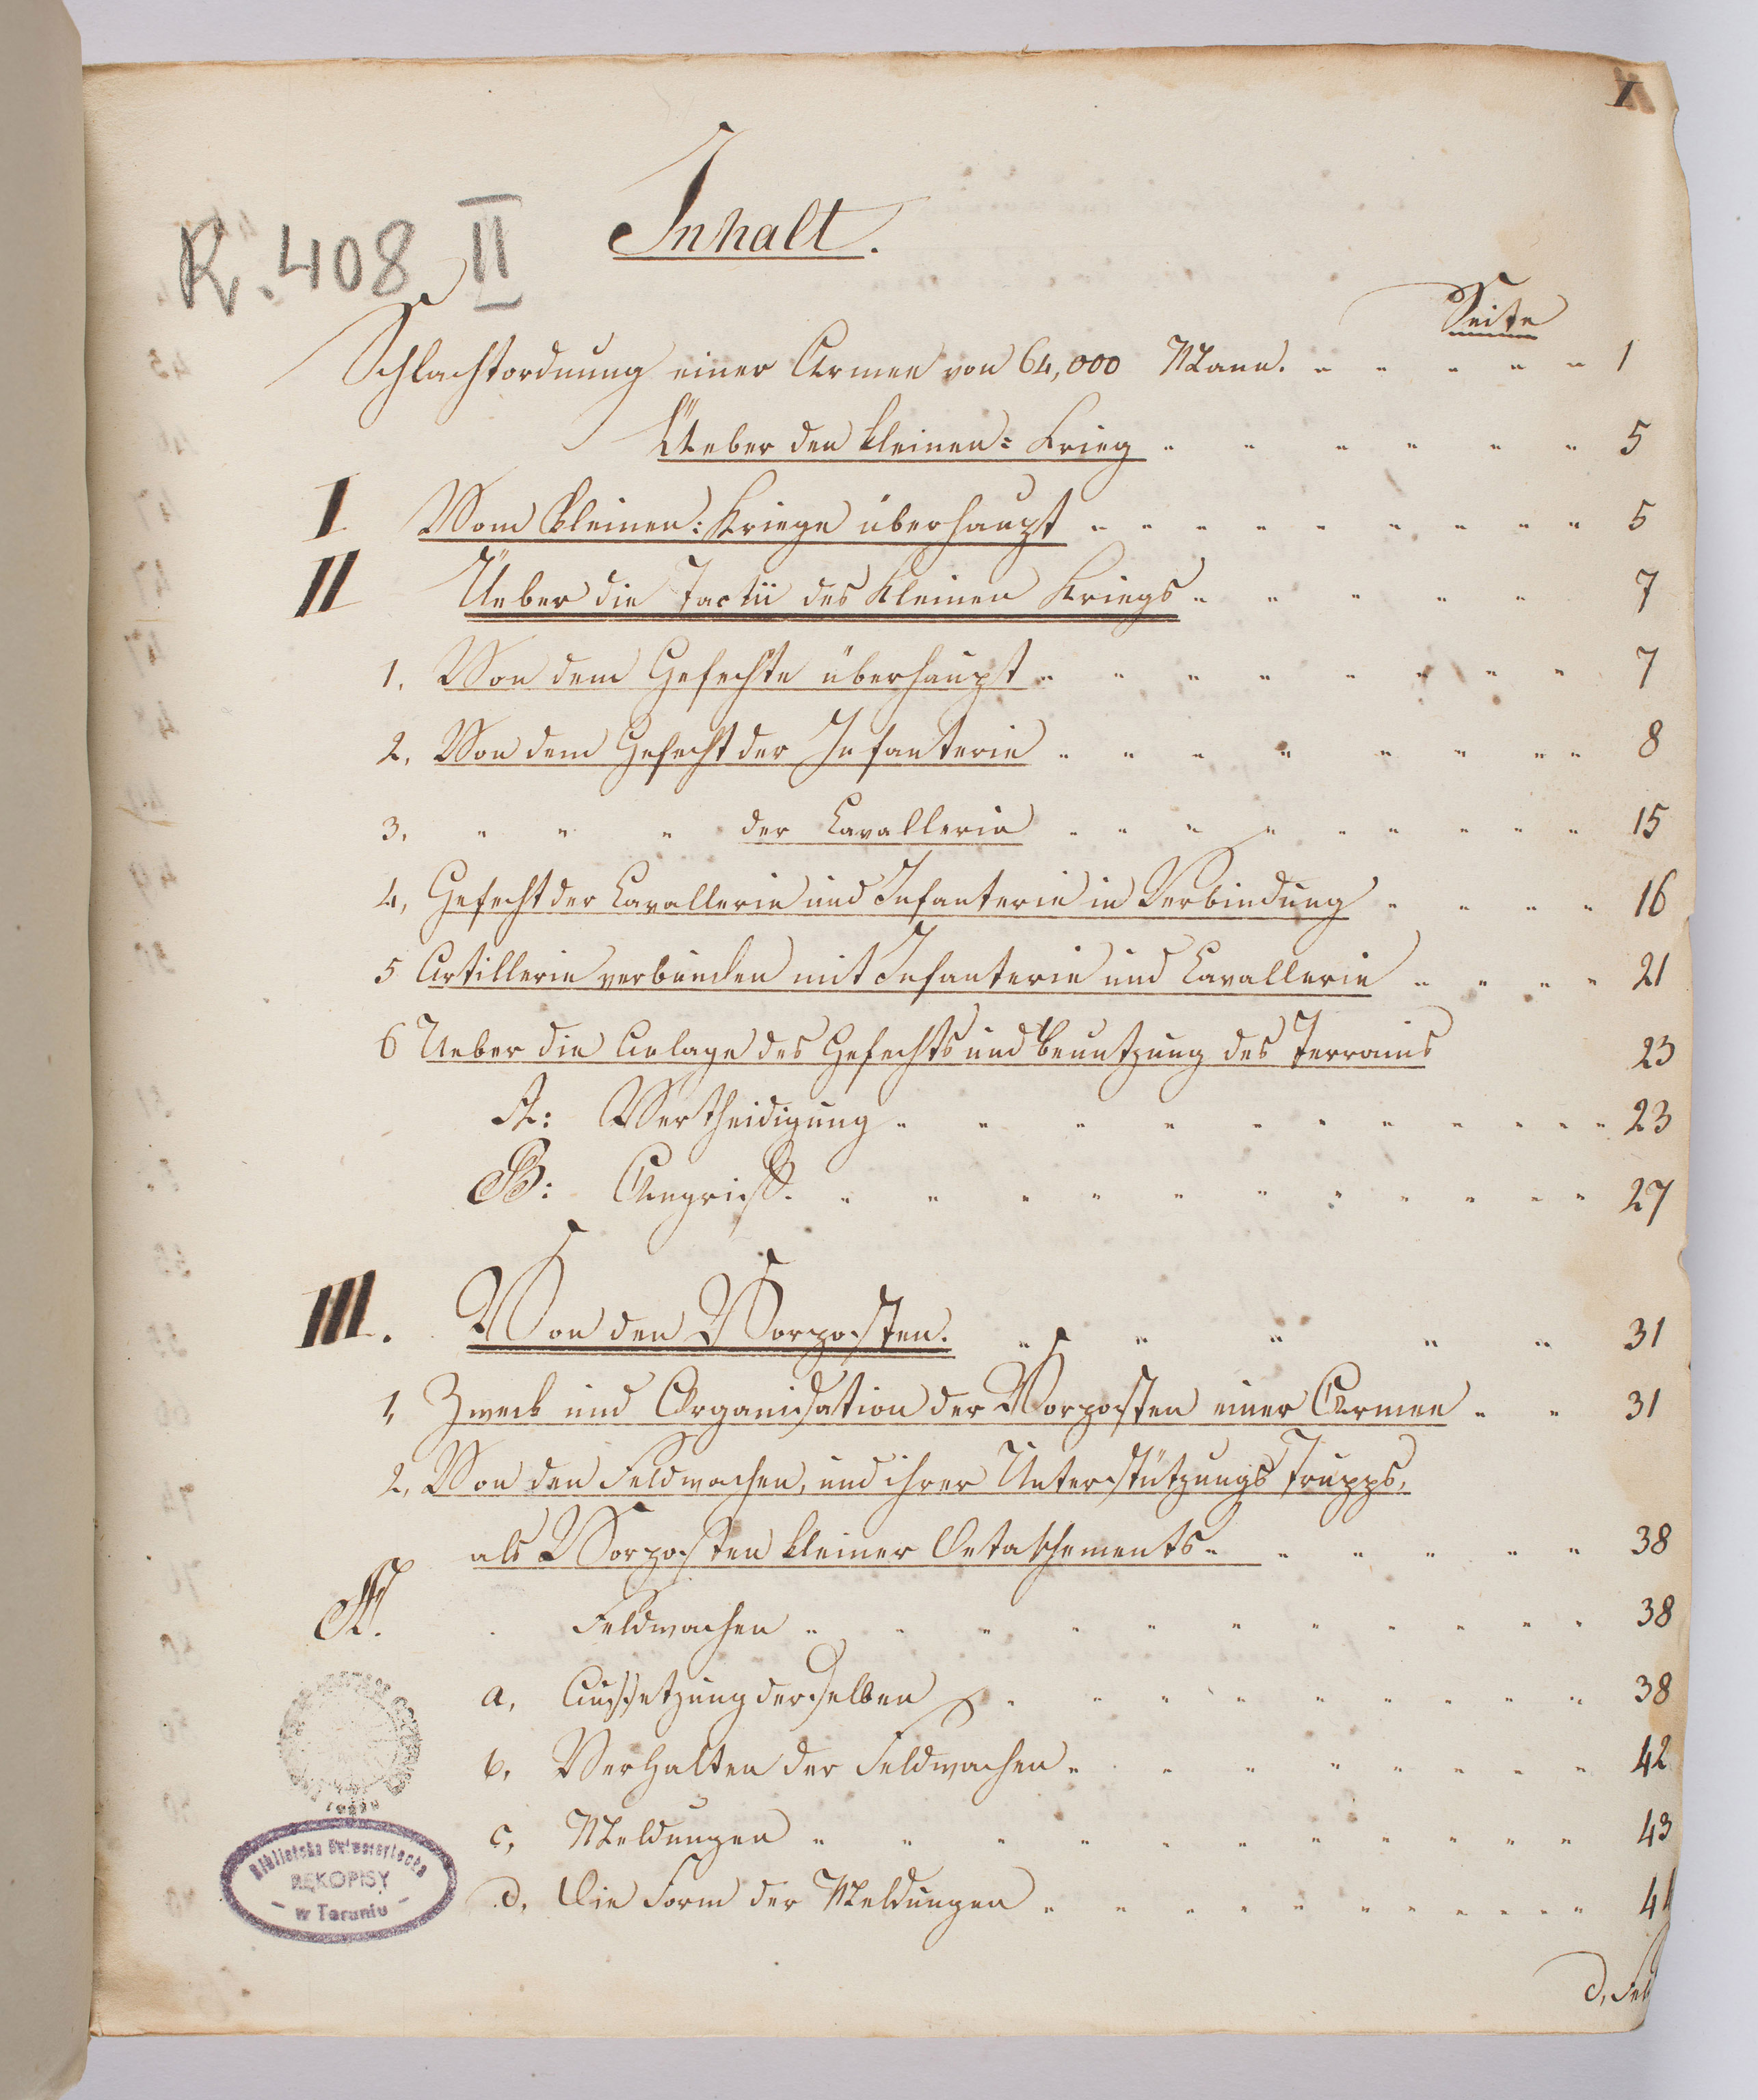 I
R. 408 II
Inhalt.
Seite
Schlachtordnung einer Armee von 64,000 Mann. " " " " " 1
Ueber den kleinen= Krieg " " " " " " 5
I Vom kleinen: Kriege überhaupt " " " " " " " " " 5
II Ueber die Tactik des kleinen Kriegs " " " " " 7
1. Von dem Gefechte überhaupt " " " " " " " " 7
2. Von dem Gefecht der Infanterie " " " " " " " " 8
3. " " " der Cavallerie " " " " " " " " " 15
4, Gefecht der Cavallerie und Infanterie in Verbindung " " " " 16
5 Artillerie verbunden mit Infanterie und Cavallerie " " " " 21
6 Ueber die Anlage des Gefechts und Benutzung des Terrains 23
A: Vertheidigung " " " " " " " " " " " 23
B: Angriff. " " " " " " " " " " " 27
III. Von den Vorposten. " " " " " 31
1, Zweck und Organisation der Vorposten einer Armee " " 31
2, Von den Feldwachen, und ihrer Unterstützungs Trupps,
als Vorposten kleiner Detaschements " " " " " " 38
A. Feldwachen " " " " " " " " " " " 38
a, Aussetzung derselben " " " " " " " " " 38
b, Verhalten der Feldwachen " " " " " " " " 42
c, Meldungen " " " " " " " " " " 43
d, Die Form der Meldungen " " " " " " " " " " 44
Biblioteka Uniwersytecka
RĘKOPISY
w Toruniu
d, Fel